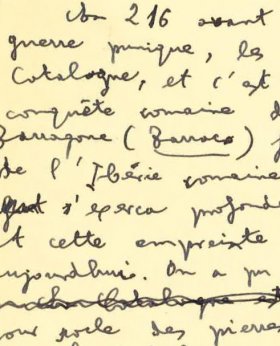 En 216 avant
guerre punique, les
Catalogne, et c'est
conquête romaine d
Tarragone (Tarraco)
de l'Ibérie romaine
s'exerça profond
t cette empreinte
ujourd'hui. On a pu
our socle des pierres